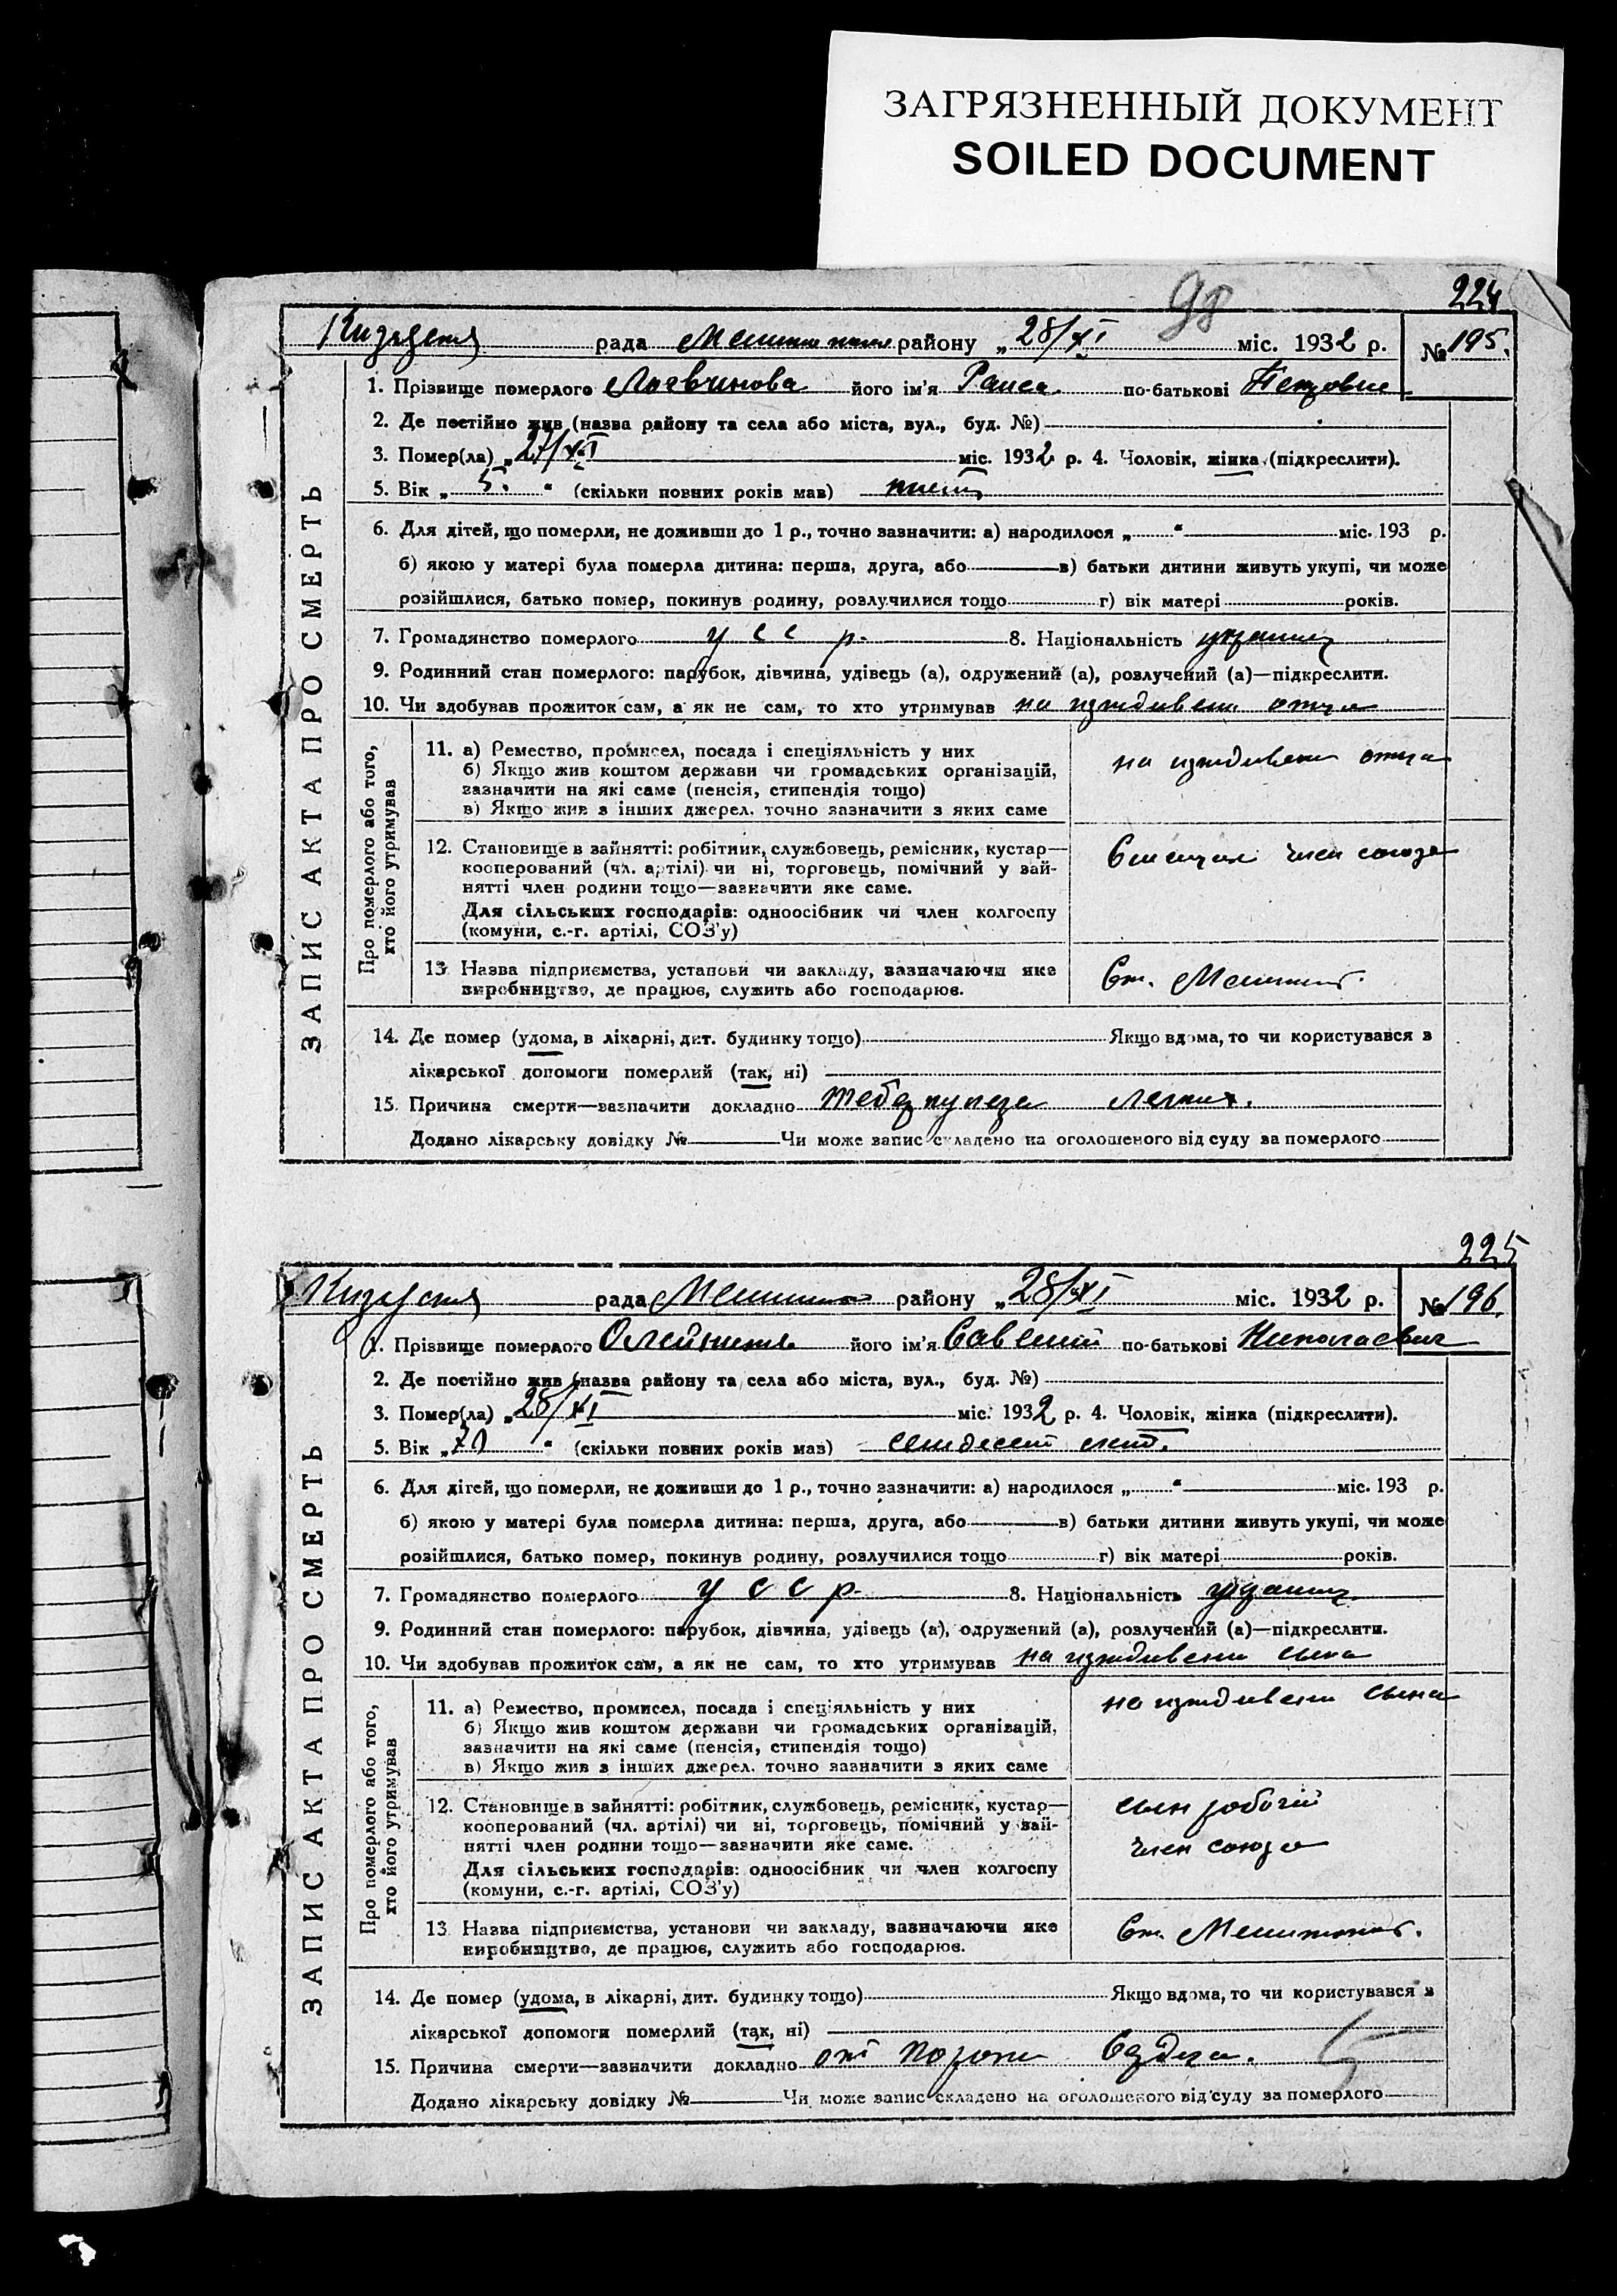 ЗАГРЯЗНЕННЫЙ ДОКУМЕНТ
SOILED DOCUMENT
98
224
рада району „28/XI міс. 1932 р. № 195.
1. Прізвище померлого Логвинова його ім'я Раиса по-батькові
2. Де постійно жив (назва району та села або міста, вул., буд. №)
3. Помер(ла) „27/XI міс. 1932 р. 4. Чоловік, жінка (підкреслити).
5. Вік „ 5. “ (скільки повних років мав)
6. Для дітей, що померли, не доживши до 1 р., точно зазначити: а) народилося „ “ міс. 193 р.
б) якою у матері була померла дитина: перша, друга, або в) батьки дитини живуть укупі, чи може
розійшлися, батько помер, покинув родину, розлучилися тощо г) вік матері років.
7. Громадянство померлого у с с р. 8. Національність
9. Родинний стан померлого: парубок, дівчина, удівець (а), одружений (а), розлучений (а)—підкреслити.
10. Чи здобував прожиток сам, а як не сам, то хто утримував на иждивени отца
ЗАПИС АКТА ПРО СМЕРТЬ
Про померлого або того,
хто його утримував
11. а) Ремество, промисел, посада і спеціяльність у них
б) Якщо жив коштом держави чи громадських організацій,
зазначити на які саме (пенсія, стипендія тощо)
в) Якщо жив з інших джерел. точно зазначити з яких саме
на иждивени отца
12. Становище в зайнятті: робітник, службовець, ремісник, кустар—
кооперований (чл. артілі) чи ні, торговець, помічний у зай-
нятті член родини тощо—зазначити яке саме.
Для сільських господарів: одноосібник чи член колгоспу
(комуни, с.-г. артілі, СОЗ'у)
член союза
13. Назва підприємства, установи чи закладу, зазначаючи яке
виробництво, де працює, служить або господарює.
Ст.
14. Де помер (удома, в лікарні, дит. будинку тощо) Якщо вдома, то чи користувався з
лікарської допомоги померлий (так, ні)
15. Причина смерти—зазначити докладно легких.
Додано лікарську довідку № Чи може запис складено на оголошеного від суду за померлого
225
рада району „28/XI міс. 1932 р. № 196.
1. Прізвище померлого його ім'я Савелий по-батькові Николаевич
2. Де постійно жив (назва району та села або міста, вул., буд. №)
3. Помер(ла) „28/XI міс. 1932 р. 4. Чоловік, жінка (підкреслити).
5. Вік „70 “ (скільки повних років мав) семдесят лет.
6. Для дітей, що померли, не доживши до 1 р., точно зазначити: а) народилося „ “ міс. 193 р.
б) якою у матері була померла дитина: перша, друга, або в) батьки дитини живуть укупі, чи може
розійшлися, батько помер, покинув родину, розлучилися тощо г) вік матері років.
7. Громадянство померлого у с с р. 8. Національність
9. Родинний стан померлого: парубок, дівчина, удівець (а), одружений (а), розлучений (а)—підкреслити.
10. Чи здобував прожиток сам, а як не сам, то хто утримував на иждивени сына
ЗАПИС АКТА ПРО СМЕРТЬ
Про померлого або того,
хто його утримував
11. а) Ремество, промисел, посада і спеціяльність у них
б) Якщо жив коштом держави чи громадських організацій,
зазначити на які саме (пенсія, стипендія тощо)
в) Якщо жив з інших джерел. точно зазначити з яких саме
на иждивени сына
12. Становище в зайнятті: робітник, службовець, ремісник, кустар—
кооперований (чл. артілі) чи ні, торговець, помічний у зай-
нятті член родини тощо—зазначити яке саме.
Для сільських господарів: одноосібник чи член колгоспу
(комуни, с.-г. артілі, СОЗ'у)
сын робочий
член союза
13. Назва підприємства, установи чи закладу, зазначаючи яке
виробництво, де працює, служить або господарює.
Ст.
14. Де помер (удома, в лікарні, дит. будинку тощо) Якщо вдома, то чи користувався з
лікарської допомоги померлий (так, ні)
15. Причина смерти—зазначити докладно от порока сердца.
Додано лікарську довідку № Чи може запис складено на оголошеного від суду за померлого